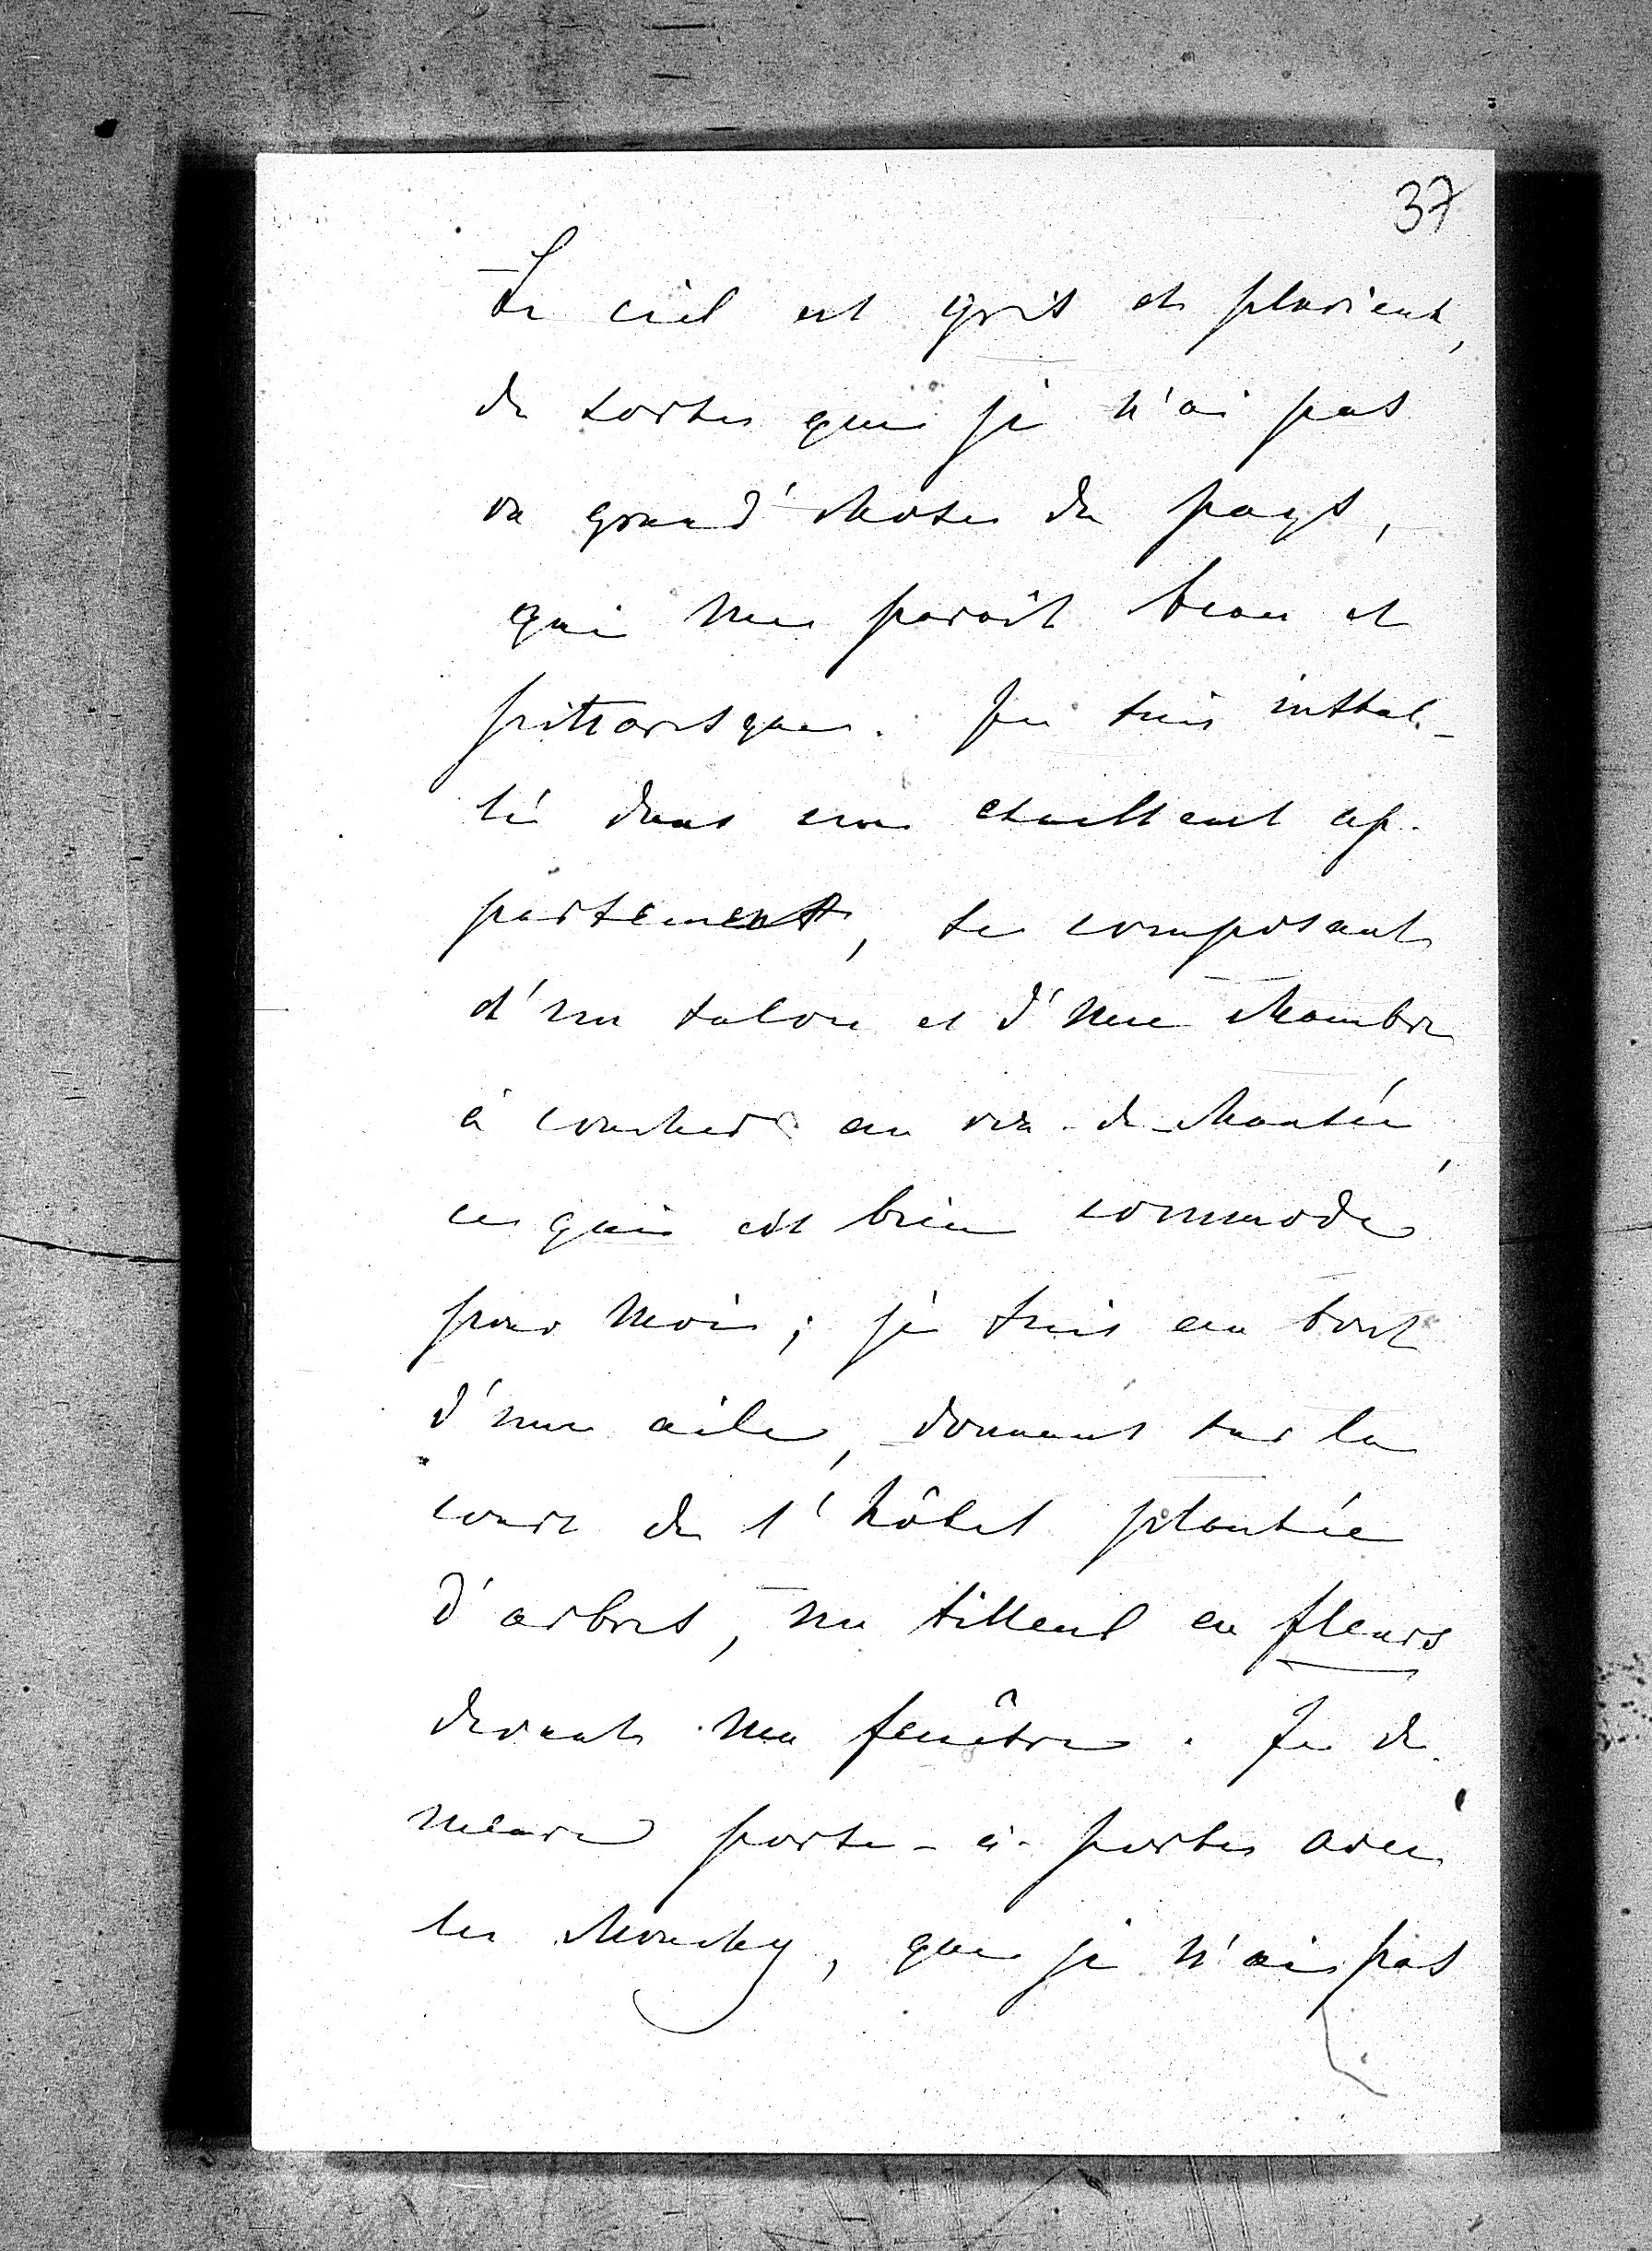 37
Le ciel est gris et pluvieux,
de sorte que je n'ai pas
vu grand'chose du pays,
qui me paraît beau et
pittoresque. Je suis instal-
lé dans un excellent ap-
partement, se composant
d'un salon et d'une chambre
à coucher au rez-de-chaussée,
ce qui est bien commode
pour moi; je suis au bout
d'une aile, donnant sur la
cour de l'hôtel plantée
d'arbres, un tilleul en fleurs
devant ma fenêtre. Je de-
meure porte-à-porte avec
les Mouchy, que je n'ai pas